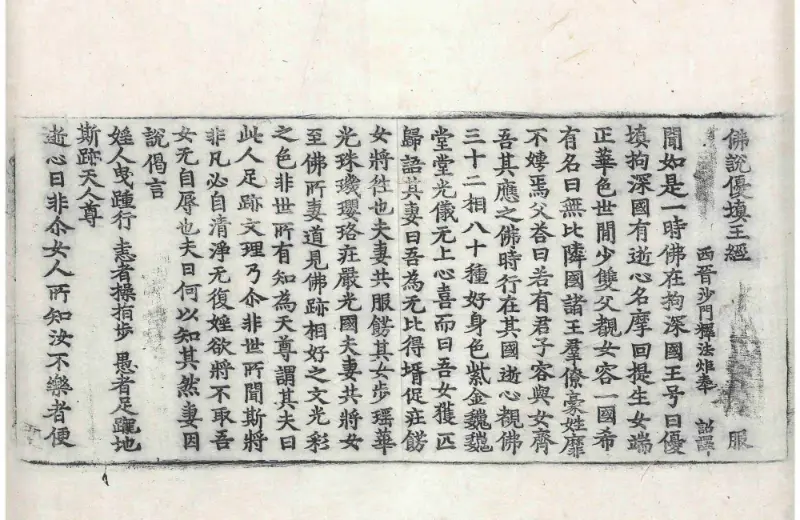 佛說優填王經 服
西晉沙門釋法炬奉 詔譯
聞如是一時佛在拘深國王号曰優
填拘深國有逝心名摩回提生女端
正華色世間少雙父覩女容一國希
有名曰無比隣國諸王羣僚豪姓靡
不娉焉父荅曰若有君子容與女齊
吾其應之佛時行在其國逝心覩佛
三十二相八十種好身色紫金巍巍
堂堂光儀无上心喜而曰吾女獲匹
歸語其妻曰吾為无比得壻促莊餝
女將往也夫妻共服餝其女步瑶華
光珠璣瓔珞莊嚴光國夫妻共將女
至佛所妻道見佛跡相好之文光彩
之色非世所有知為天尊謂其夫曰
此人足跡文理乃尒非世所聞斯將
非凡必自清淨无復婬欲將不取吾
女无自辱也夫曰何以知其然妻因
說偈言
婬人曳踵行 恚者操指步 愚者足地
斯跡天人尊
逝心曰非尒女人所知汝不樂者便